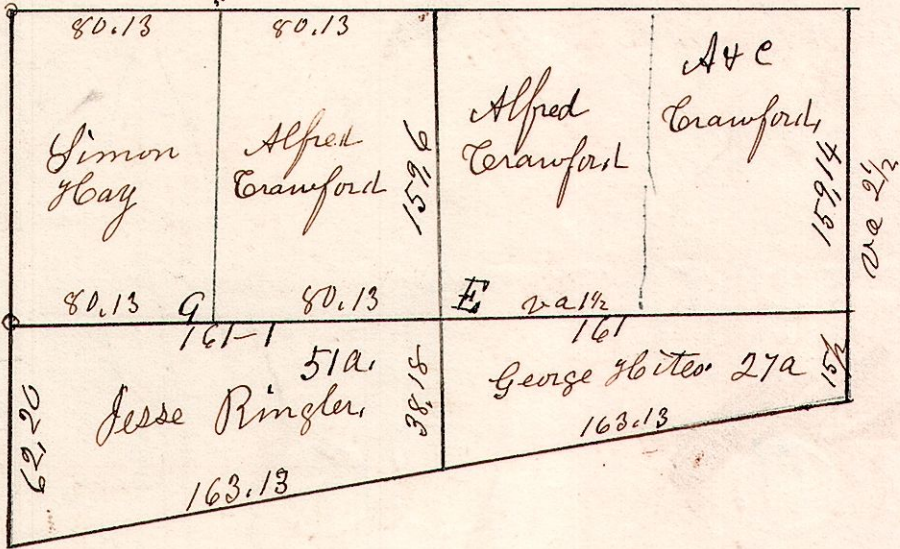 80.13
80.13
Simon
Hay
Alfred
Crawford
159.6
Alfred
Crawford
A & C
Crawford,
159.14
va 2 1/2
80.13
G
80.13
E
va 1 1/2
161-1
161
51a.
Jesse Ringler.
62.20
38.18
George Hites. 27a
15 1/2
163.13
163.13